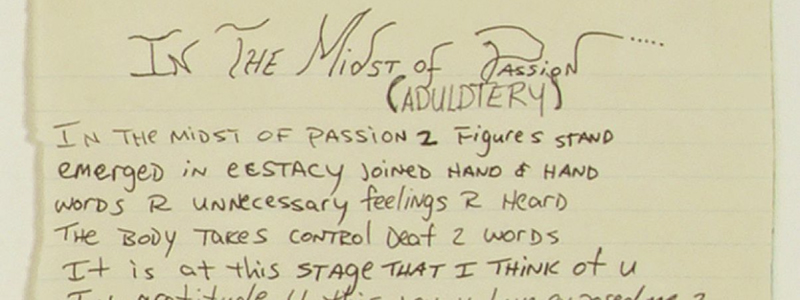 In The Midst of Passion .....
(ADULDTERY)
IN THE MIDST OF PASSION 2 Figures STAND
emerged in EESTACY Joined HAND & HAND
words R unnecessary feelings R Heard
THE BODY TAKES CONTROL Deaf 2 words
It is at this STAGE THAT I THINK of u
gratitude 4 this